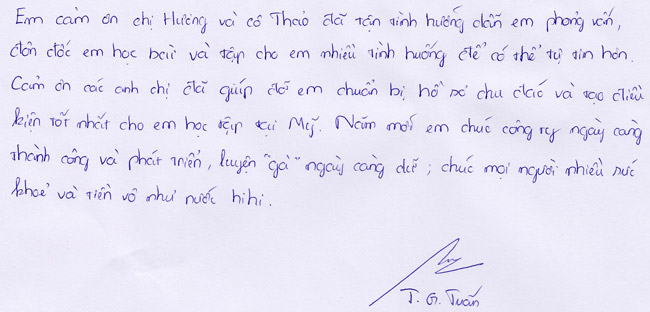 Em cảm ơn chị Hương và cô Thảo đã tận tình hướng dẫn em phỏng vấn,
đôn đốc em học bài và tập cho em nhiều tình huống để có thể tự tin hơn.
Cảm ơn các anh chị đã giúp đỡ em chuẩn bị hồ sơ chu đáo và tạo điều
kiện tốt nhất cho em học tập tại Mỹ. Năm mới em chúc công ty ngày càng
thành công và phát triển, luyện "gà" ngày càng dữ; chúc mọi người nhiều sức
khoẻ và tiền vô như nước hihi.
T. G. Tuấn